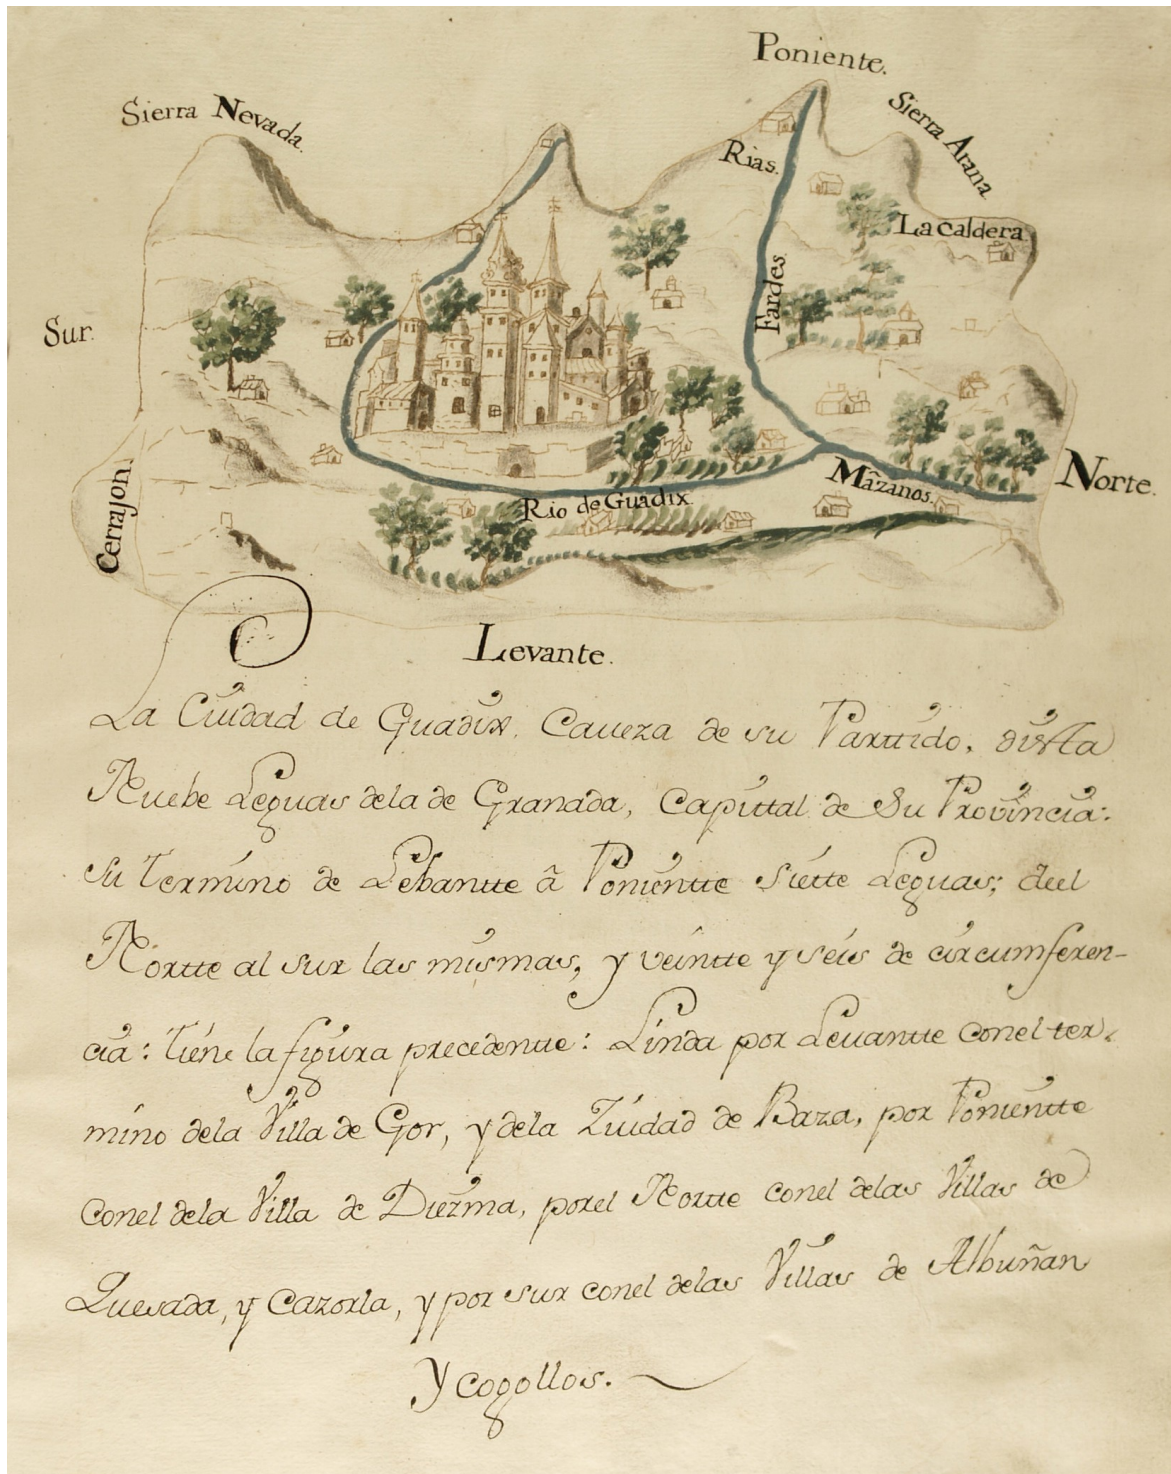 Poniente.
Sierra Nevada.
Sierra Arana
Rias.
La Caldera
Fardes
Sur.
Cerrajon.
Mâzanos.
Norte.
Rio de Guadix
Levante.
La Ciudad de Guadix. Caueza de su Parttido, dista
Nuebe Leguas dela de Granada, Capittal de Su Provincia:
su Termino de Lebantte â Ponientte Siette Leguas; deel
Nortte al sur las mismas, y veintte y séis de circumferen-
cia: tiene la figura precedentte: Linda por Leuantte conel ter-
mino dela Villa de Gor, y dela Ziudad de Baza, por Ponientte
conel dela Villa de Diezma, porel Nortte conel delas Villas de
Quesada, y Cazorla, y por sur conel delas Villas de Albuñan
Y cogollos.